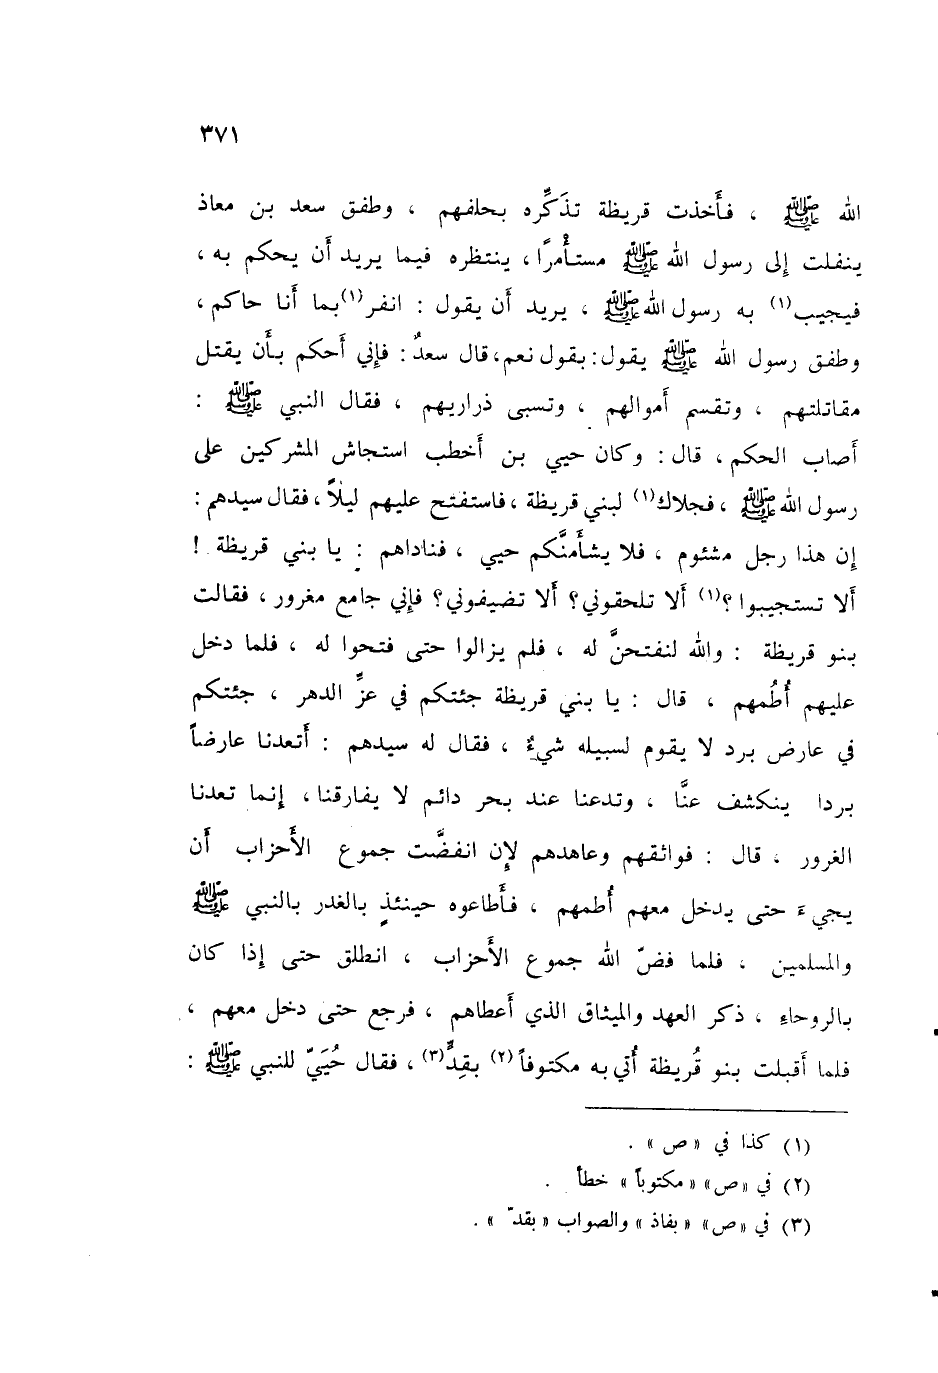 ٣٧١
الله ﷺ ، فأَخذت قريظة تذَكِّره بحلفهم ، وطفق سعد بن معاذ
ينفلت إلى رسول الله ﷺ مستأْمرًا ، ينتظره فيما يريد أَن يحكم به ،
فيجيب(١) به رسول الله ﷺ ، يريد أَن يقول : انفر(١) بما أَنا حاكم ،
وطفق رسول الله ﷺ يقول : بقول نعم ، قال سعدٌ : فإني أَحكم بأَن يقتل
مقاتلتهم ، وتقسم أَموالهم ، وتسبى ذراريهم ، فقال النبي ﷺ :
أَصاب الحكم ، قال : وكان حيي بن أَخطب استجاش المشركين على
رسول الله ﷺ ، فجلاك(١) لبني قريظة ، فاستفتح عليهم ليلاً ، فقال سيدهم :
إن هذا رجل مشئوم ، فلا يشأَمنَّكم حيي ، فناداهم : يا بني قريظة !
أَلا تستجيبوا ؟(١) أَلا تلحقوني ؟ أَلا تضيفوني ؟ فإني جامع مغرور ، فقالت
بنو قريظة : والله لنفتحنَّ له ، فلم يزالوا حتى فتحوا له ، فلما دخل
عليهم أُطُمهم ، قال : يا بني قريظة جئتكم في عزِّ الدهر ، جئتكم
في عارض برد لا يقوم لسبيله شيءٌ ، فقال له سيدهم : أَتعدنا عارضاً
بردا ينكشف عنَّا ، وتدعنا عند بحر دائم لا يفارقنا ، إنما تعدنا
الغرور ، قال : فواثقهم وعاهدهم لإن انفضَّت جموع الأَحزاب أَن
يجيء حتى يدخل معهم أُطمهم ، فأَطاعوه حينئذٍ بالغدر بالنبي ﷺ
والمسلمين ، فلما فضّ الله جموع الأَحزاب ، انطلق حتى إذا كان
بالروحاءِ ، ذكر العهد والميثاق الذي أَعطاهم ، فرجع حتى دخل معهم ،
فلما أَقبلت بنو قُريظة أُتي به مكتوفاً (٢) بقِدٍّ(٣) ، فقال حُيَيّ للنبي ﷺ :
(١) كذا في « ص » .
(٢) في « ص » « مكتوباً » خطأ .
(٣) في « ص » « بفاذ » والصواب « بقدّ » .